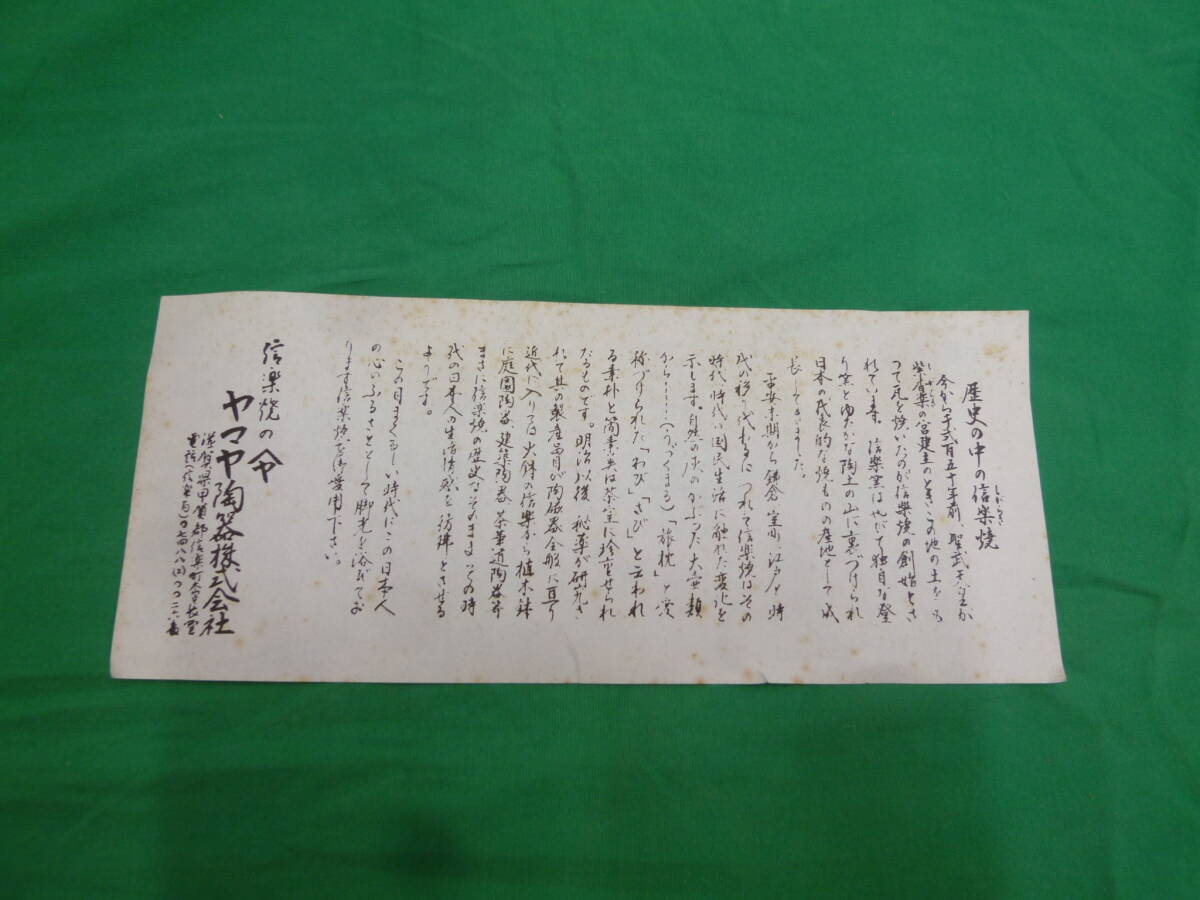 歴史の中の信楽焼
しがらき
今から千弐百五十年前、聖武天皇が
しがらき
紫香楽の宮建立のとき、この地の土をも
って瓦を焼いたのが信楽焼の創始とさ
れています。信楽窯は、独自な登
り窯とゆたかな陶土の山に裏づけられ
日本の代表的な焼ものの産地として成
長してきました。
平安末期から鎌倉、室町、江戸と時
代の移り代るにつれて信楽焼はその
時代、時代の国民生活に触れた変化を
示します。自然の灰のかぶった大壷類
から……(うづくまる)「旅枕」と愛
称づけられた「わび」「さび」と云われ
る素朴と簡素美は茶室に珍重せられ
たるものです。明治以後、秘薬が研究さ
れて其の製産品目が陶磁器全般に亘り
近代に入りては火鉢の信楽から植木鉢
に庭園陶器、建築陶器、茶華道陶器等
まさに信楽焼の歴史はそのまま、その時
代の日本人の生活情感を彷彿とさせる
ようです。
この目まぐるしい時代にこの日本人
の心のふるさととして脚光を浴びてお
ります信楽焼を御愛用下さい。
信楽焼の
ヤマヤ陶器株式会社
滋賀県甲賀郡信楽町大字長野
電話(信楽局)〇七四八八(2)〇〇二一番